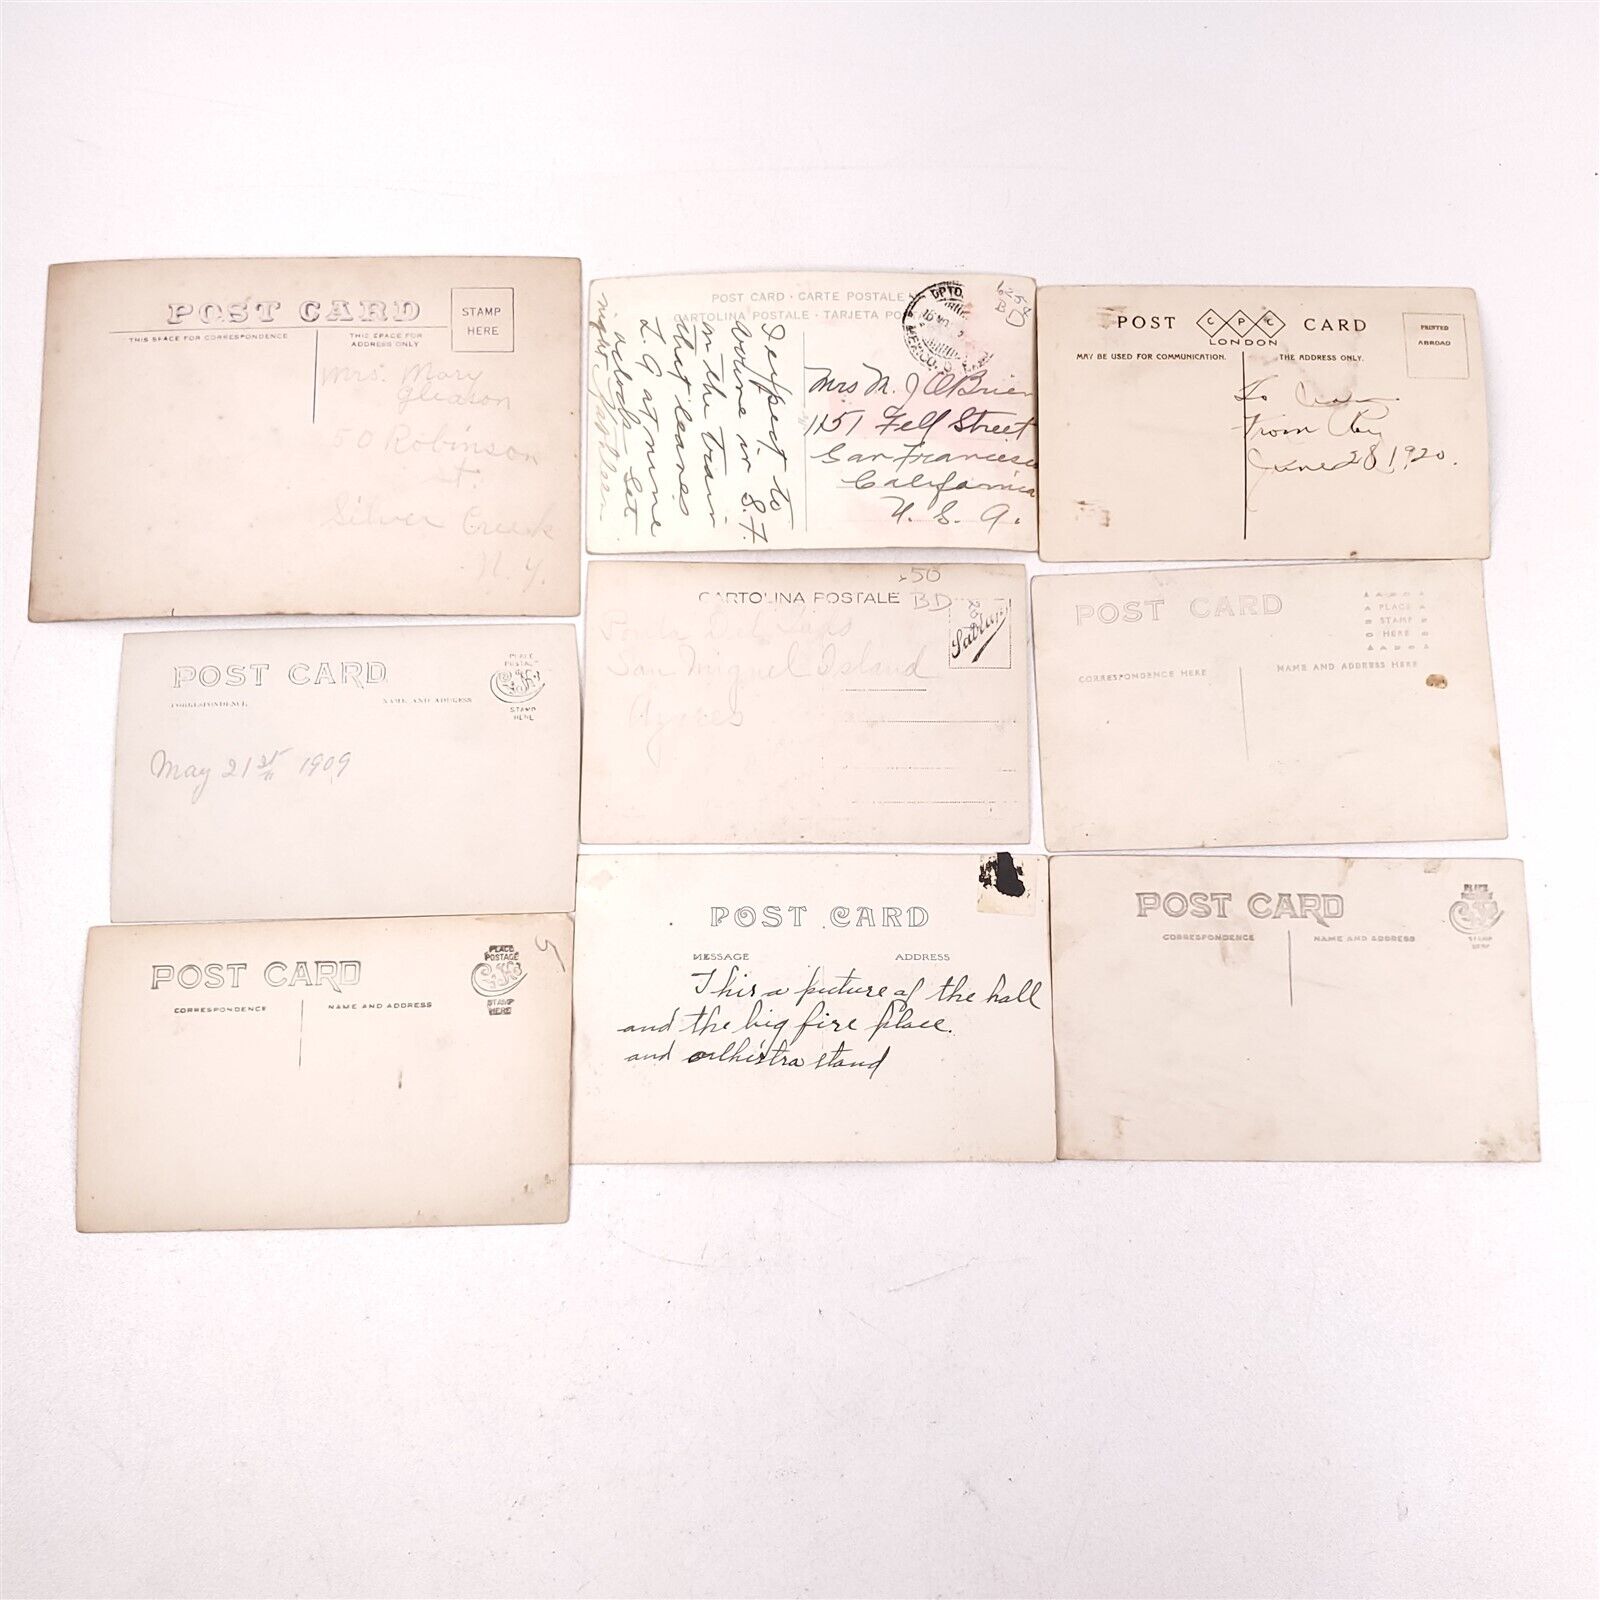 POST CARD
STAMP
HERE
THIS SPACE FOR CORRESPONDENCE
THIS SPACE FOR
ADDRESS ONLY
Mrs. Mary
Gleason
50 Robinson
st.
Silver Creek
N.Y.
POST CARD · CARTE POSTALE
CARTOLINA POSTALE · TARJETA PO
I expect to
be in S.F.
on the train
that leaves
L.A at nine
oclock Sat
night
Mrs M. J OBrien
1151 Fell Street
San Francisco
California
U. S. A.
MEXICO
625
BD
POST CPC CARD
LONDON
MAY BE USED FOR COMMUNICATION.
THE ADDRESS ONLY.
PRINTED
ABROAD
To
From Ray
June 28 1920.
POST CARD
CORRESPONDENCE
NAME AND ADDRESS
PLACE
POSTAGE
STAMP
HERE
May 21st 1909
CARTOLINA POSTALE
.50
BD
San Miguel Island
Azores
POST CARD
PLACE
STAMP
HERE
CORRESPONDENCE HERE
NAME AND ADDRESS HERE
POST CARD
CORRESPONDENCE
NAME AND ADDRESS
PLACE
POSTAGE
STAMP
HERE
5
POST CARD
MESSAGE
ADDRESS
This a picture of the hall
and the big fire place.
and orlhistra stand
POST CARD
CORRESPONDENCE
NAME AND ADDRESS
PLACE
STAMP
HERE